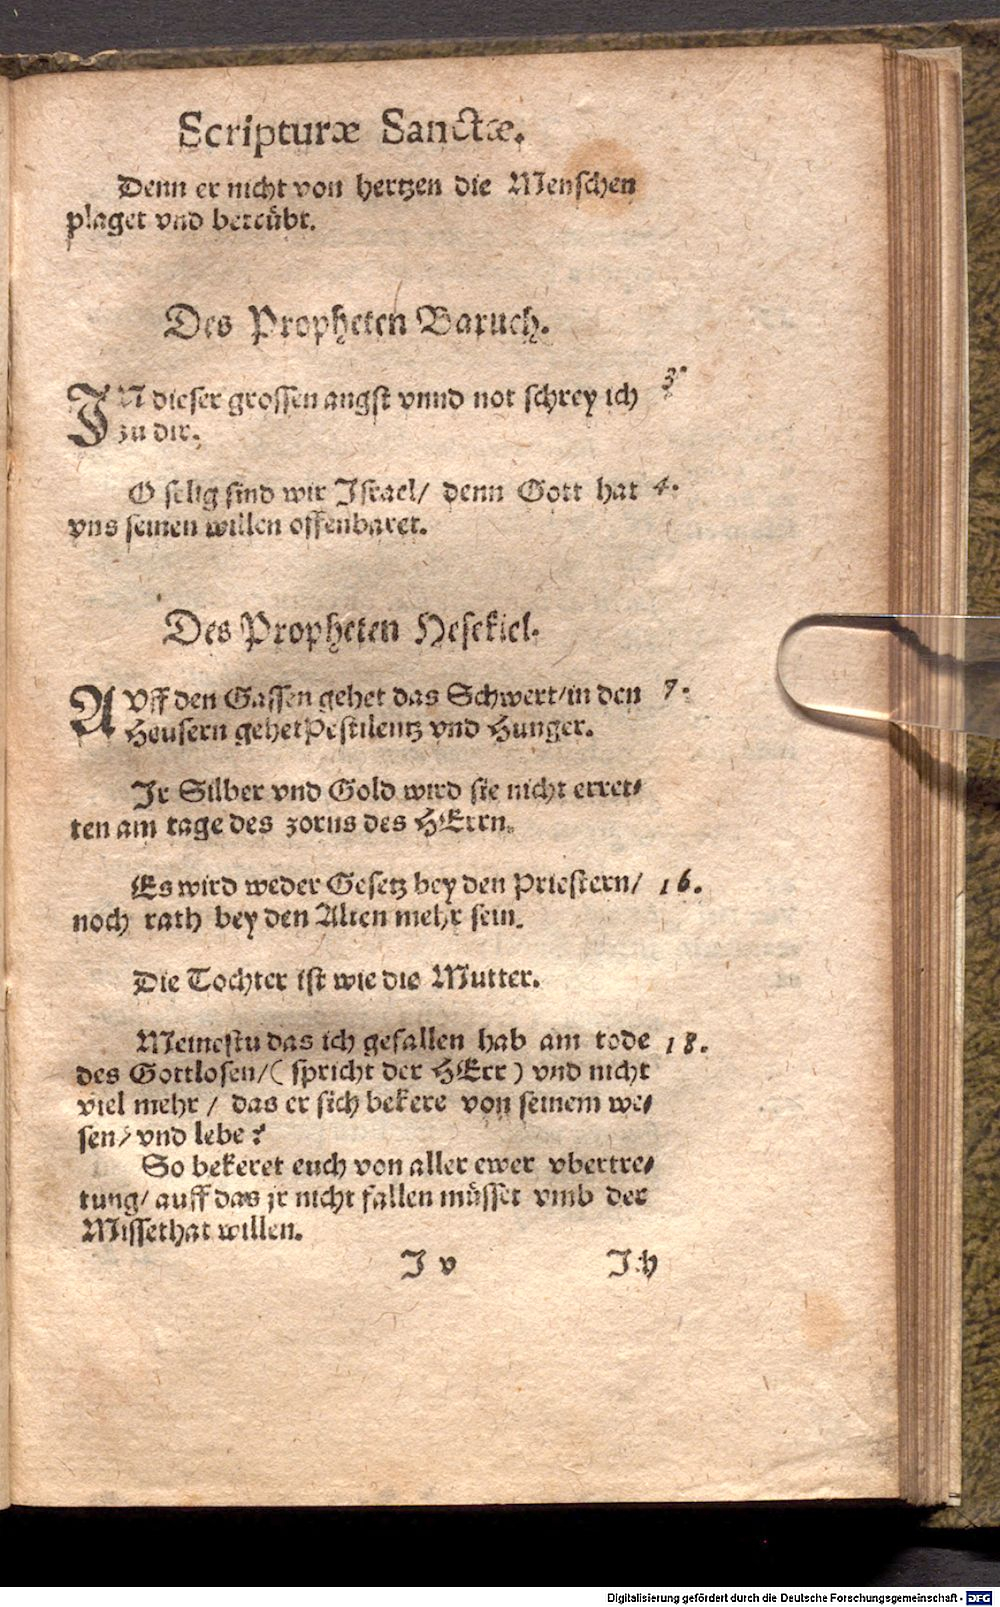 Scripturæ Sanctæ.
Denn er nicht von hertzen die Menschen
plaget vnd betrübt.
Des Propheten Baruch.
IN dieser grossen angst vnnd not schrey ich 3.
zu dir.
O selig sind wir Israel/ denn Gott hat 4.
vns seinen willen offenbaret.
Des Propheten Hesekiel.
AVff den Gassen gehet das Schwert/in den 7.
Heusern gehet Pestilentz vnd Hunger.
Jr Silber vnd Gold wird sie nicht erret-
ten am tage des zorns des HErrn.
Es wird weder Gesetz bey den Priestern/ 16.
noch rath bey den Alten mehr sein.
Die Tochter ist wie die Mutter.
Meinestu das ich gefallen hab am tode 18.
des Gottlosen/( spricht der HErr ) vnd nicht
viel mehr / das er sich bekere von seinem we-
sen/ vnd lebe?
So bekeret euch von aller ewer vbertre-
tung/ auff das jr nicht fallen müsset vmb der
Missethat willen.
I v Ich
Digitalisierung gefördert durch die Deutsche Forschungsgemeinschaft - DFG